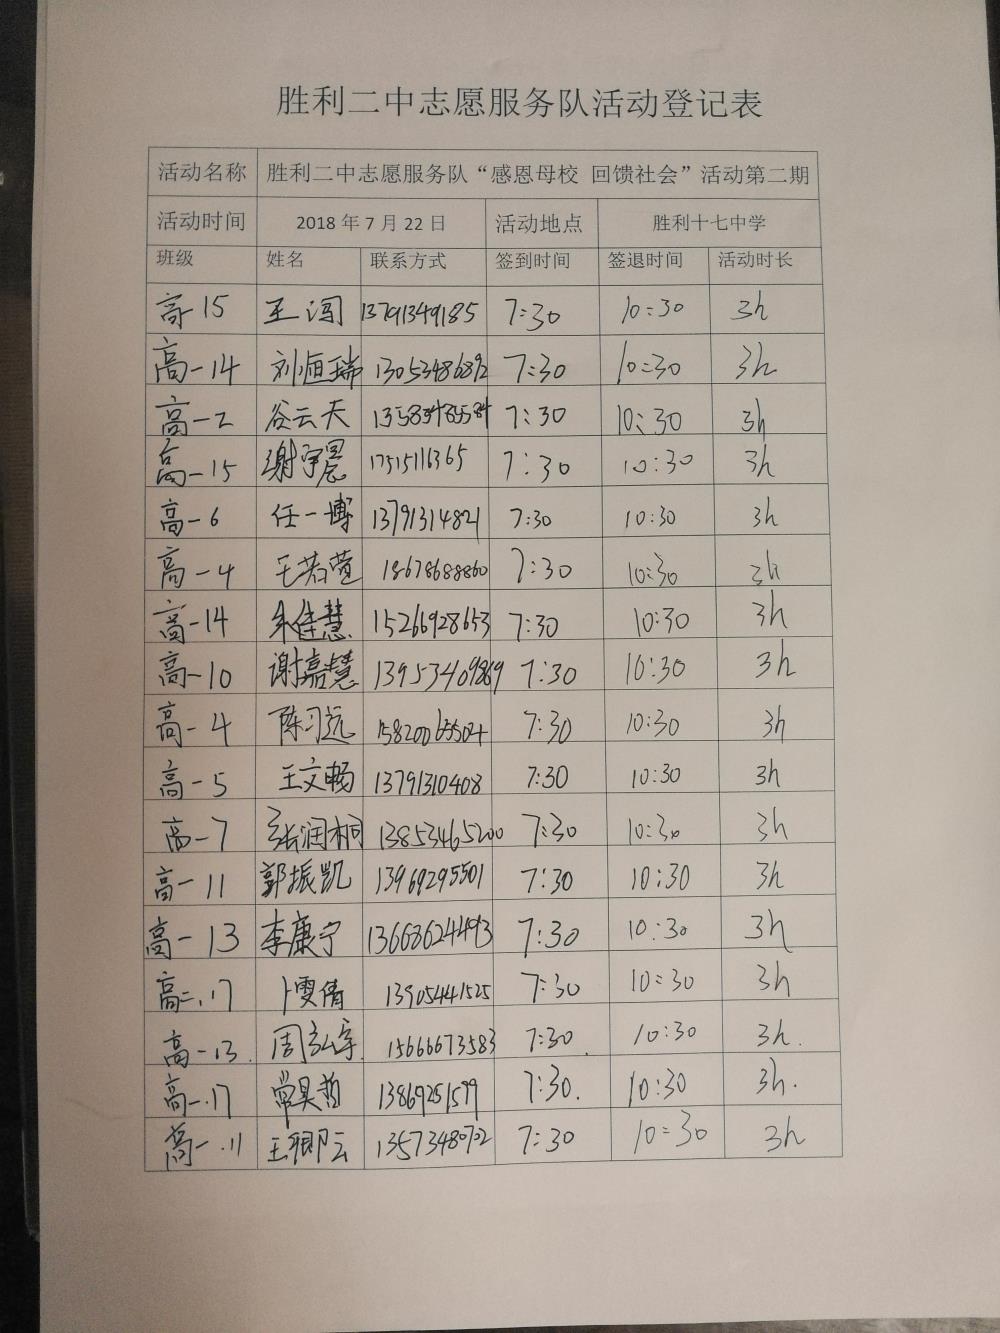 胜利二中志愿服务队活动登记表
活动名称 胜利二中志愿服务队“感恩母校 回馈社会”活动第二期
活动时间 2018 年 7 月 22 日 活动地点 胜利十七中学
班级 姓名 联系方式 签到时间 签退时间 活动时长
高一15 王闯 13791349185 7:30 10:30 3h
高一14 刘恒瑞 13053486892 7:30 10:30 3h
高一2 谷云天 7:30 10:30 3h
高一15 谢宇晨 17515116365 7:30 10:30 3h
高一6 任一博 13791314821 7:30 10:30 3h
高一4 王若萱 18678688860 7:30 10:30 3h
高一14 朱佳慧 15266928653 7:30 10:30 3h
高一10 谢嘉慧 13953409869 7:30 10:30 3h
高一4 陈习远 15820065504 7:30 10:30 3h
高一5 王文畅 13791310408 7:30 10:30 3h
高一7 张润桐 13853465200 7:30 10:30 3h
高一11 郭振凯 13969295501 7:30 10:30 3h
高一13 李康宁 13668624493 7:30 10:30 3h
高二.17 卜雯倩 13905441525 7:30 10:30 3h
高一13. 周弘宇 15666673583 7:30. 10:30 3h.
高一.17 常昊哲 13869251579 7:30. 10:30 3h.
高一.11 王卿云 13573480702 7:30 10:30 3h